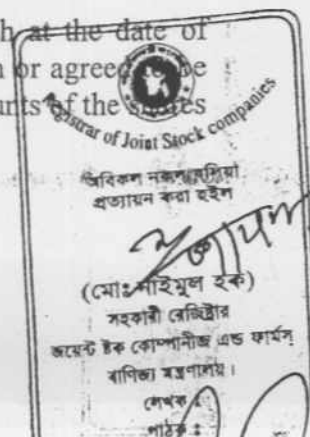 h at the date of
or agreed to be
unts of the shares
Registrar of Joint Stock companies
অবিকল নকল বলিয়া
প্রত্যায়ন করা হইল
(মোঃ মাইমুল হক)
সহকারী রেজিষ্ট্রার
জয়েন্ট ষ্টক কোম্পানীজ এন্ড ফার্মস
বাণিজ্য মন্ত্রণালয়।
লেখক :
পাঠক :